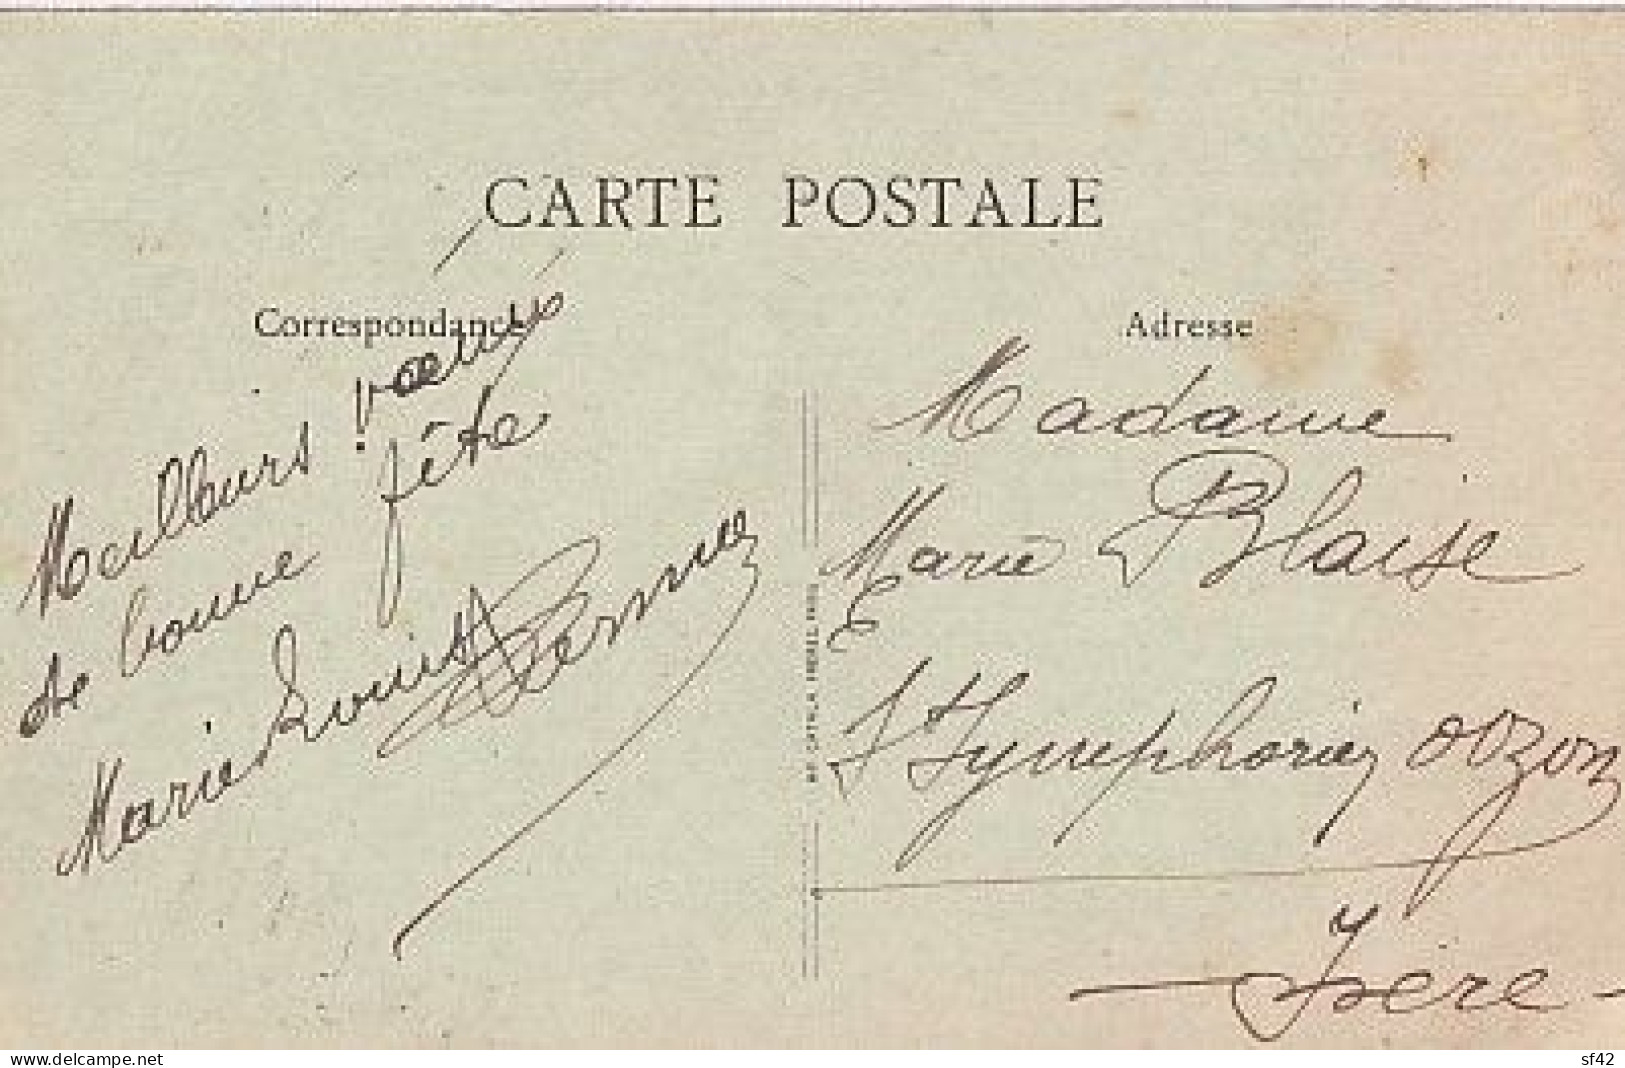 CARTE POSTALE
Correspondance
Meilleurs vœux
de bonne fête
Marie Louise
Adresse
Madame
Marie Blaise
St Symphorien d'Ozon
Isère
www.delcampe.net
sf42